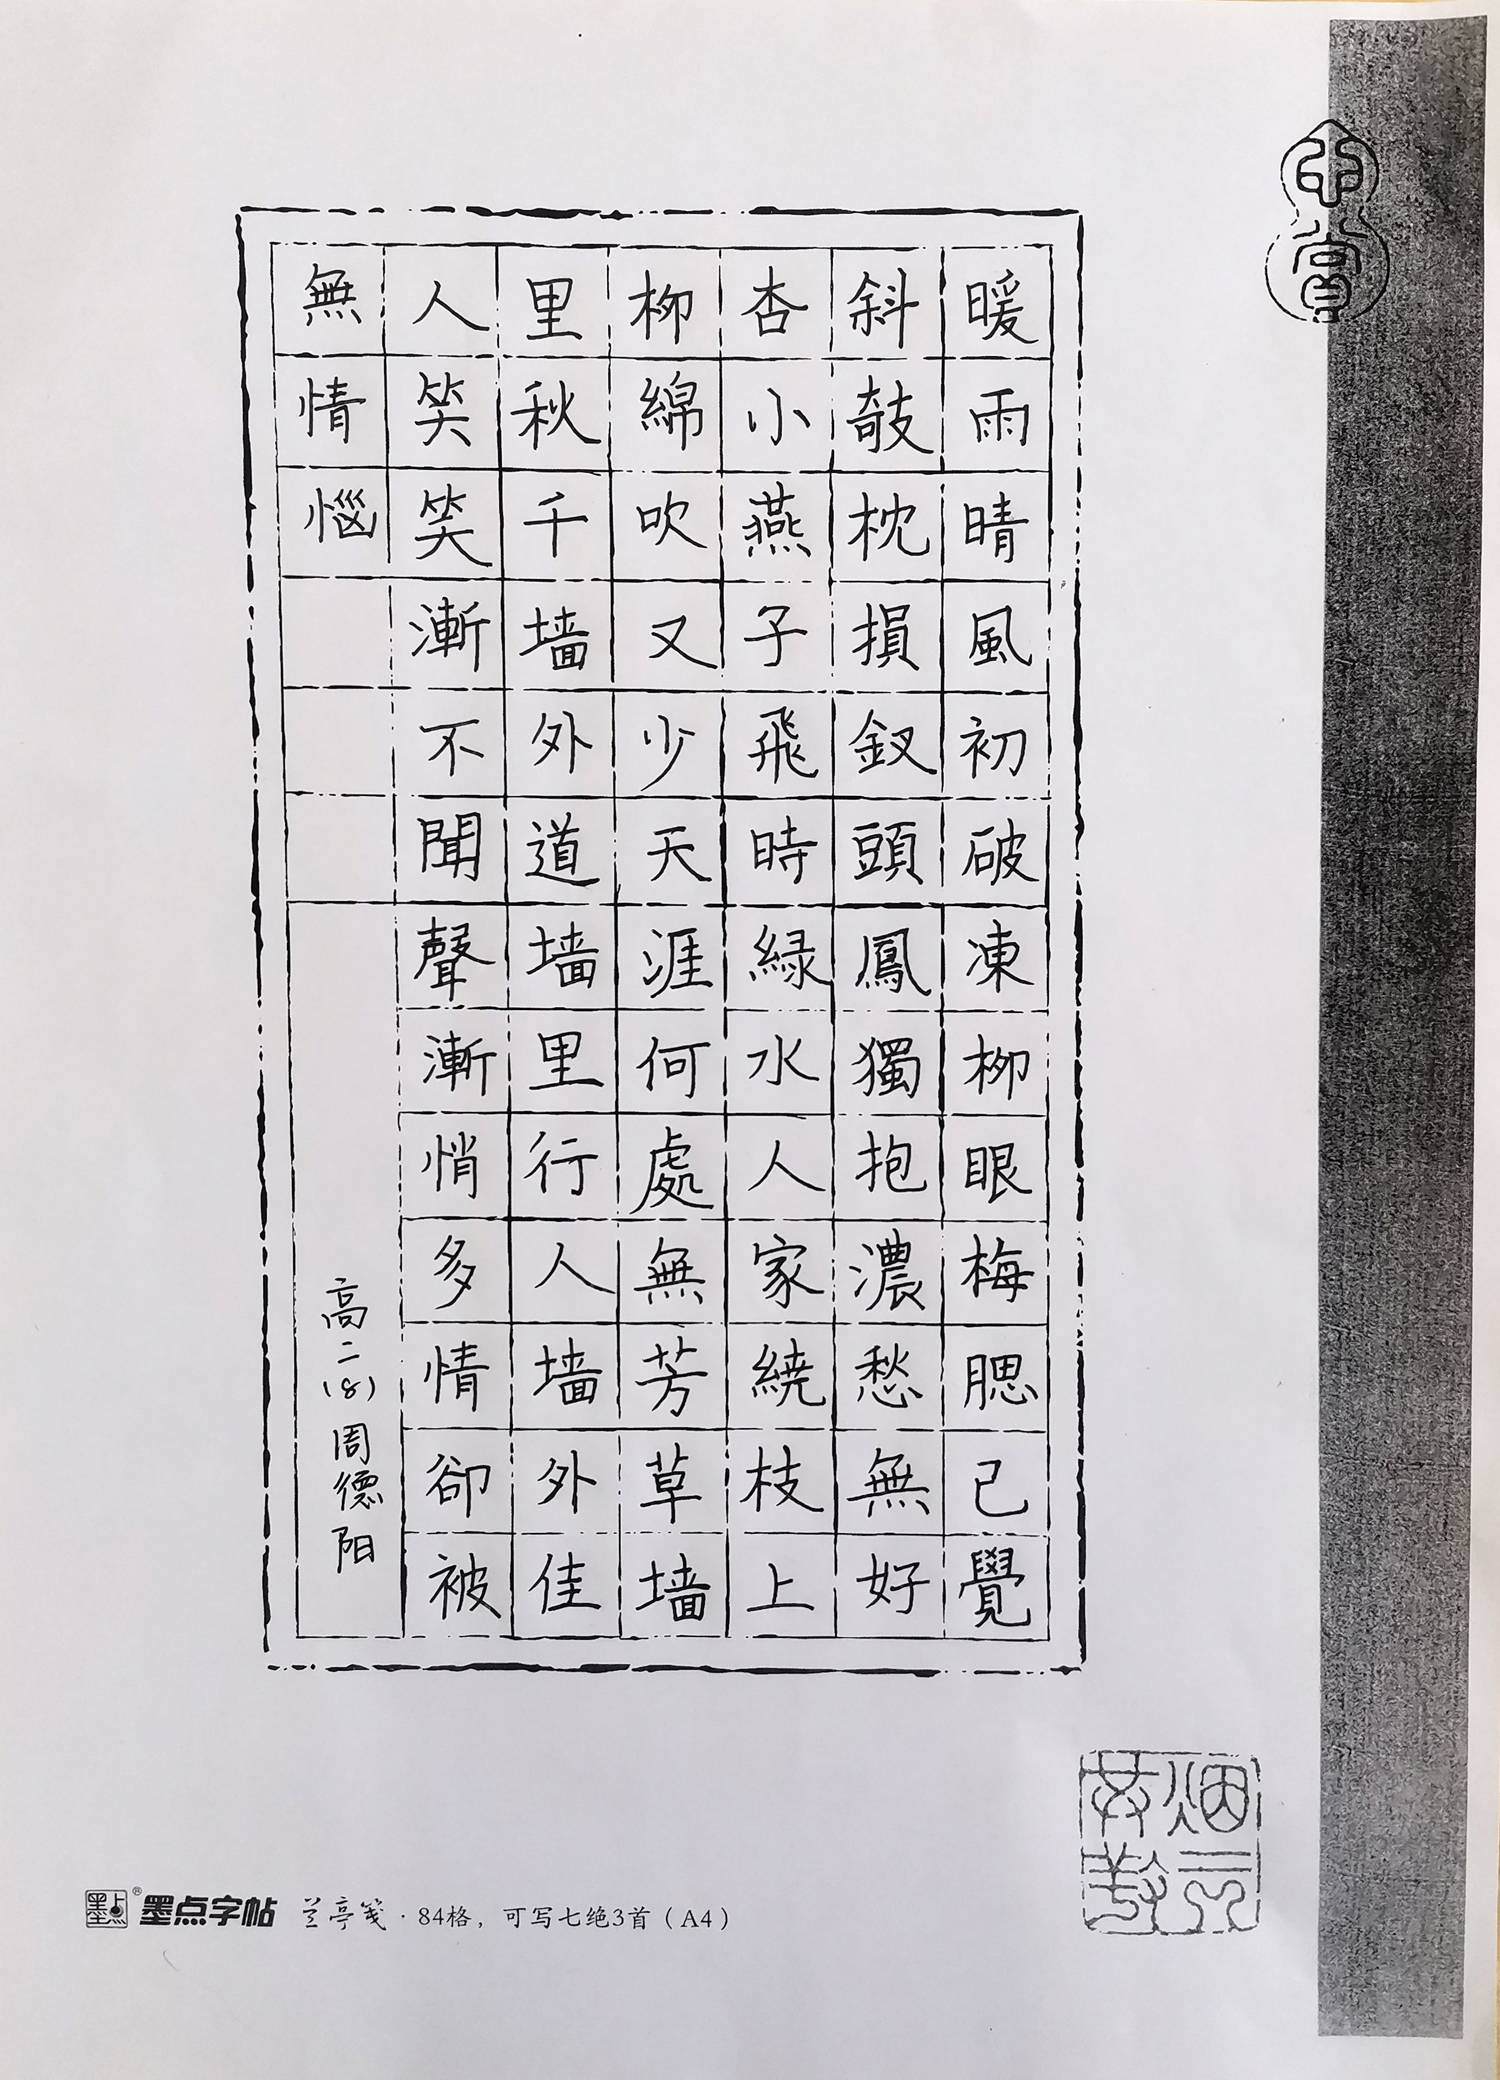 暖雨晴風初破凍柳眼梅腮已覺
斜攲枕損釵頭鳳獨抱濃愁無好
杏小燕子飛時緑水人家繞枝上
柳綿吹又少天涯何處無芳草墙
里秋千墙外道墙里行人墙外佳
人笑笑漸不聞聲漸悄多情卻被
無情惱
高二(8)周德阳
墨点字帖 兰亭笺·84格，可写七绝3首（A4）